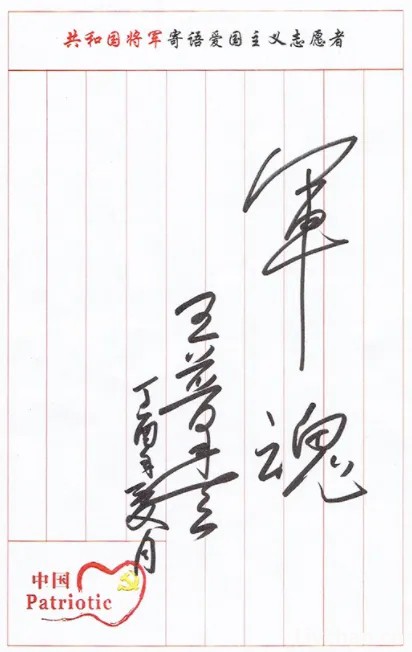 共和国将军寄语爱国主义志愿者
軍魂
丁酉年夏月
中国
Patriotic